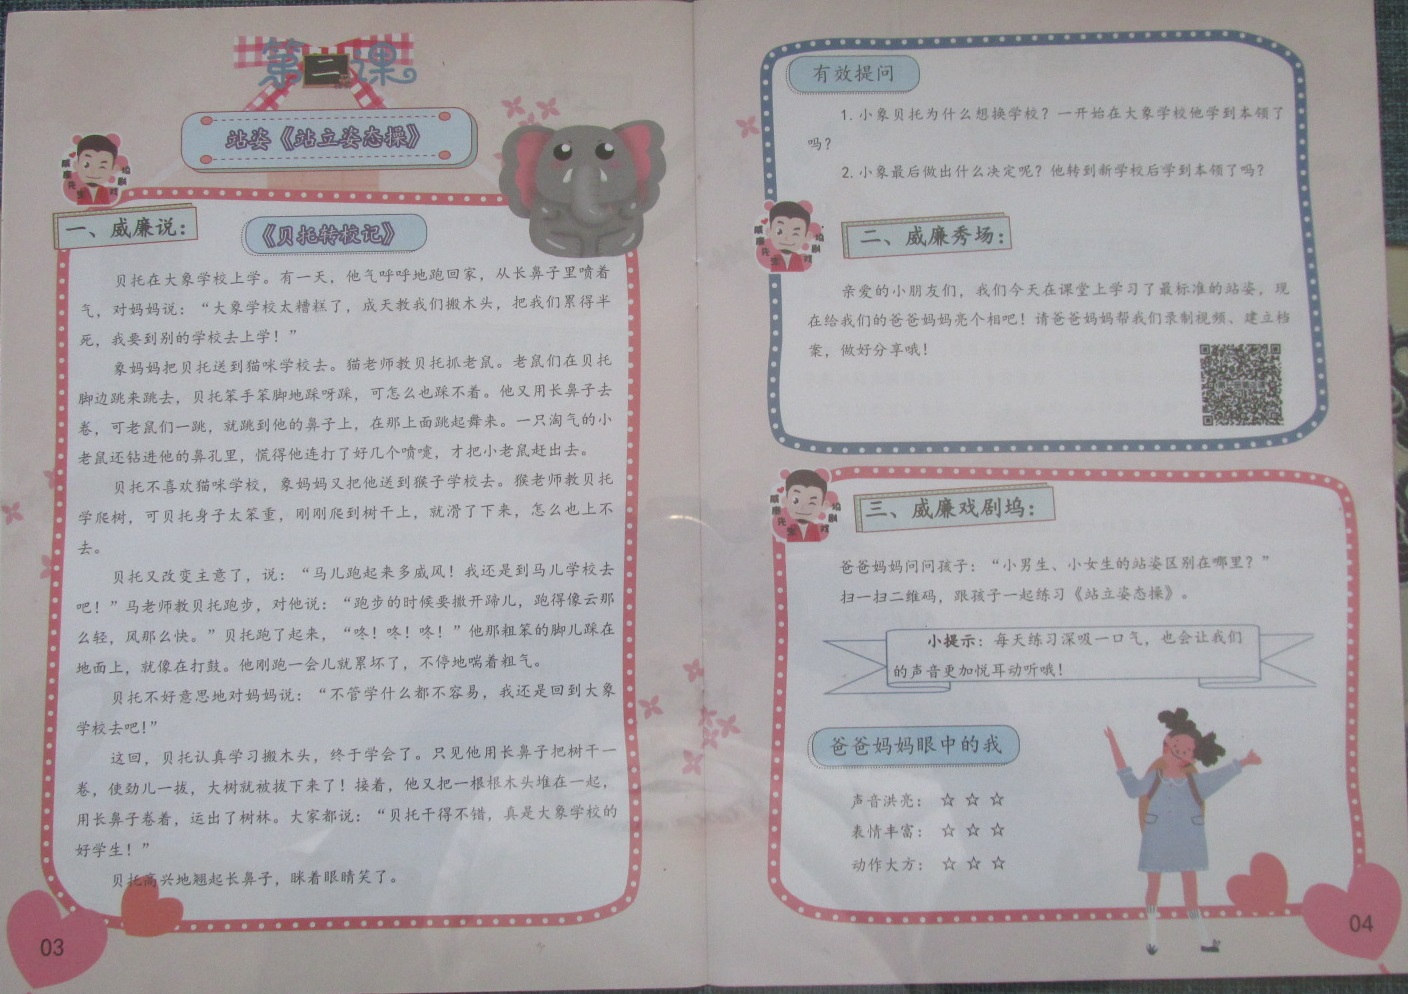 第二课
站姿《站立姿态操》
一、威廉说：
《贝托转校记》
贝托在大象学校上学。有一天，他气呼呼地跑回家，从长鼻子里喷着
气，对妈妈说：“大象学校太糟糕了，成天教我们搬木头，把我们累得半
死，我要到别的学校去上学！”
象妈妈把贝托送到猫咪学校去。猫老师教贝托抓老鼠。老鼠们在贝托
脚边跳来跳去，贝托笨手笨脚地踩呀踩，可怎么也踩不着。他又用长鼻子去
卷，可老鼠们一跳，就跳到他的鼻子上，在那上面跳起舞来。一只淘气的小
老鼠还钻进他的鼻孔里，慌得他连打了好几个喷嚏，才把小老鼠赶出去。
贝托不喜欢猫咪学校，象妈妈又把他送到猴子学校去。猴老师教贝托
学爬树，可贝托身子太笨重，刚刚爬到树干上，就滑了下来，怎么也上不
去。
贝托又改变主意了，说：“马儿跑起来多威风！我还是到马儿学校去
吧！”马老师教贝托跑步，对他说：“跑步的时候要撒开蹄儿，跑得像云那
么轻，风那么快。”贝托跑了起来，“咚！咚！咚！”他那粗笨的脚儿踩在
地面上，就像在打鼓。他刚跑一会儿就累坏了，不停地喘着粗气。
贝托不好意思地对妈妈说：“不管学什么都不容易，我还是回到大象
学校去吧！”
这回，贝托认真学习搬木头，终于学会了。只见他用长鼻子把树干一
卷，使劲儿一拔，大树就被拔下来了！接着，他又把一根根木头堆在一起，
用长鼻子卷着，运出了树林。大家都说：“贝托干得不错，真是大象学校的
好学生！”
贝托高兴地翘起长鼻子，眯着眼睛笑了。
03
有效提问
1.小象贝托为什么想换学校？一开始在大象学校他学到本领了
吗？
2.小象最后做出什么决定呢？他转到新学校后学到本领了吗？
二、威廉秀场：
亲爱的小朋友们，我们今天在课堂上学习了最标准的站姿，现
在给我们的爸爸妈妈亮个相吧！请爸爸妈妈帮我们录制视频、建立档
案，做好分享哦！
三、威廉戏剧坞：
爸爸妈妈问问孩子：“小男生、小女生的站姿区别在哪里？”
扫一扫二维码，跟孩子一起练习《站立姿态操》。
小提示：每天练习深吸一口气，也会让我们
的声音更加悦耳动听哦！
爸爸妈妈眼中的我
声音洪亮：☆ ☆ ☆
表情丰富：☆ ☆ ☆
动作大方：☆ ☆ ☆
04